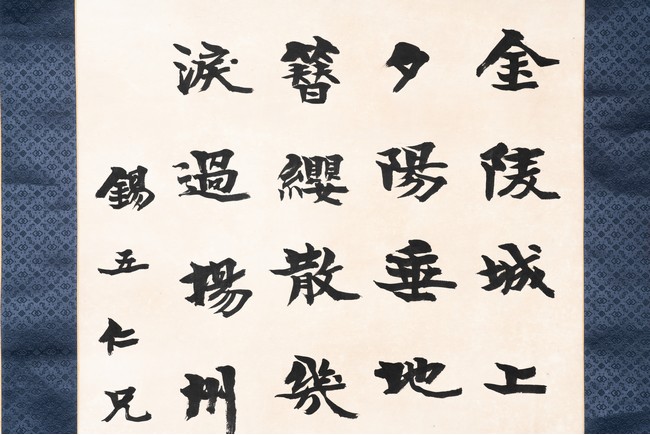 金陵城上
夕陽垂地
簪纓散幾
淚過揚州
錫五仁兄